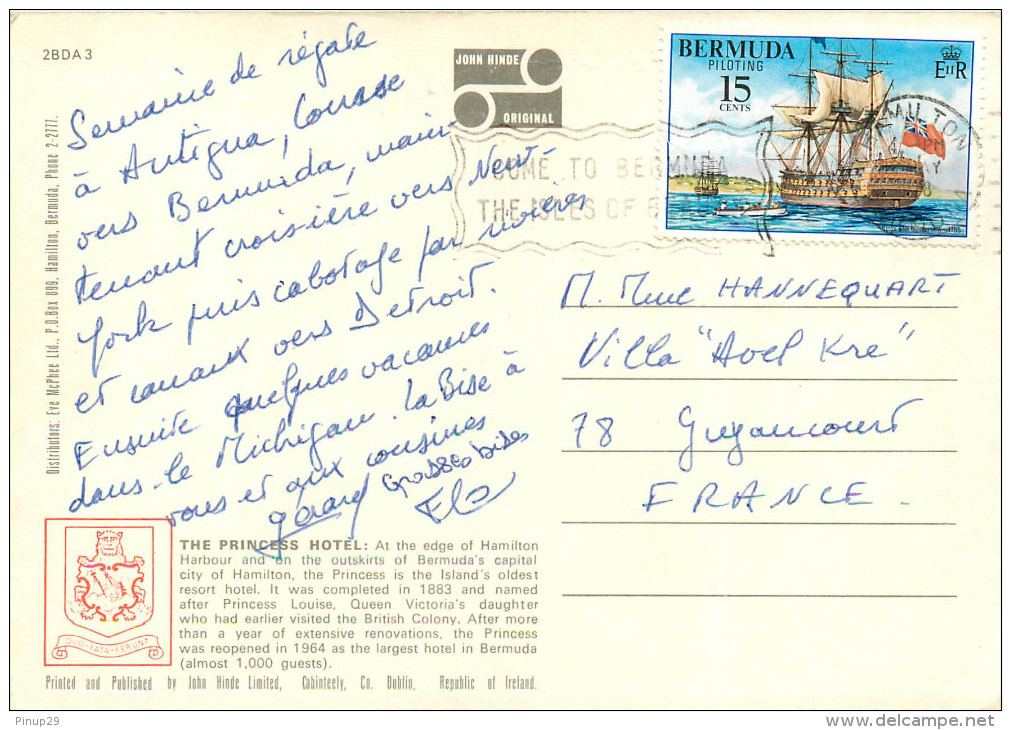 2BDA3
JOHN HINDE
ORIGINAL
BERMUDA
PILOTING
15
CENTS
E II R
COME TO BERMUDA
THE ISLES OF
MILTON
Semaine de régate
à Antigua, Course
vers Bermuda, main-
tenant croisière vers New-
York puis cabotage par rivières
et canaux vers Detroit.
Ensuite quelques vacances
dans le Michigan. La Bise à
vous et aux cousines
Gérard Grosses bises
Flo
M. Mme HANNEQUART
Villa "Avel Kre"
78 Guyancourt
FRANCE.
Distributors: Eve McPhee Ltd., P.O.Box 899, Hamilton, Bermuda, Phone 2-2777.
QUO FATA FERUNT
THE PRINCESS HOTEL: At the edge of Hamilton
Harbour and on the outskirts of Bermuda's capital
city of Hamilton, the Princess is the Island's oldest
resort hotel. It was completed in 1883 and named
after Princess Louise, Queen Victoria's daughter
who had earlier visited the British Colony. After more
than a year of extensive renovations, the Princess
was reopened in 1964 as the largest hotel in Bermuda
(almost 1,000 guests).
Printed and Published by John Hinde Limited, Cabinteely, Co. Dublin, Republic of Ireland.
Pinup29
delcampe.net